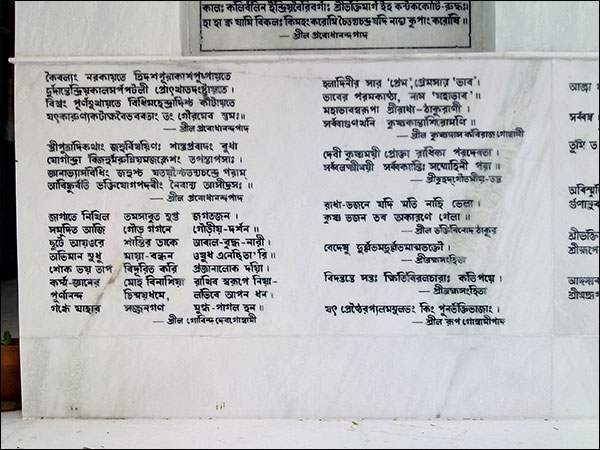 কালঃ কলির্বলিন ইন্দ্রিয়বৈরিবর্গাঃ শ্রীভক্তিমার্গ ইহ কণ্টককোটি-রুদ্ধঃ।
হা হা ক্ব যামি বিকলঃ কিমহং করোমি চৈতন্যচন্দ্র যদি নাদ্য কৃপাং করোষি॥
— শ্রীল প্রবোধানন্দপাদ
কৈবল্যং নরকায়তে ত্রিদশপূরাকাশপুষ্পায়তে
দুর্দান্তেন্দ্রিয়কালসর্পপটলী প্রোৎখাতদংষ্ট্রায়তে।
বিশ্বং পূর্ণসুখায়তে বিধিমহেন্দ্রাদিশ্চ কীটায়তে
যৎকারুণ্যকটাক্ষবৈভববতাং তং গৌরমেব স্তুমঃ॥
— শ্রীল প্রবোধানন্দপাদ
স্ত্রীপুত্রাদিকথাং জহুর্বিষয়িণঃ শাস্ত্রপ্রবাদং বুধা
যোগীন্দ্রা বিজহুর্মরুন্নিয়মজক্লেশং তপস্তাপসাঃ।
জ্ঞানাভ্যাসবিধিং জহুশ্চ যতয়শ্চৈতন্যচন্দ্রে পরাম্
আবিষ্কুর্বতি ভক্তিযোগপদবীং নৈবান্য আসীদ্রসঃ॥
— শ্রীল প্রবোধানন্দপাদ
জগতে নিখিল তমসাবৃত সুপ্ত জগতজন।
সমুদিত আজি গৌড় গগনে গৌড়ীয়-দর্শন॥
ছুটে আয়ওরে শান্তির ডাকে আবাল-বৃদ্ধ-নারী।
অভিমান সুধু মায়া-বন্ধন ওষুধ এনেছিতা'রি॥
শোক ভয় তাপ বিদূরিত করি প্রজ্ঞানালোক দিয়া।
কর্ম্ম-জ্ঞানের মোহ বিনাশিয়া রাখিব স্বরূপে নিয়া—
পূর্ণানন্দ চিন্ময়ধমে, লভিবে আপন ধন।
গন্ধে যাহার সজ্জনগণ মুগ্ধ-পাগল হন॥
— শ্রীল গোবিন্দ দেবগোস্বামী
হ্লাদিনীর সার 'প্রেম', প্রেমসার 'ভাব'।
ভাবের পরমকাষ্ঠা, নাম 'মহাভাব'॥
মহাভাবস্বরূপা শ্রীরাধা-ঠাকুরাণী।
সর্বগুণখনি কৃষ্ণকান্তাশিরোমণি॥
— শ্রীল কৃষ্ণদাস কবিরাজ গোস্বামী
দেবী কৃষ্ণময়ী প্রোক্তা রাধিকা পরদেবতা।
সর্বলক্ষ্মীময়ী সর্বকান্তিঃ সম্মোহিনী পরা॥
— শ্রীবৃহদ্গৌতমীয়-তন্ত্র
রাধা-ভজনে যদি মতি নাহি ভেলা।
কৃষ্ণ ভজন তব অকারণে গেলা॥
— শ্রীল ভক্তিবিনোদ ঠাকুর
বেদেষু দুর্ল্লভমদুর্ল্লভমাত্মভক্তৌ।
— শ্রীব্রহ্মসংহিতা
বিদন্তস্তে সন্তঃ ক্ষিতিবিরলচারাঃ কতিপয়ে।
— শ্রীব্রহ্মসংহিতা
যৎ প্রেষ্ঠৈরপ্যলমসুলভং কিং পুনর্ভক্তিভাজাং।
— শ্রীল রূপ গোস্বামীপাদ